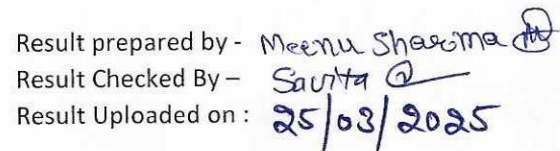 Result prepared by - Meenu Sharma
Result Checked By – Savita
Result Uploaded on : 25/03/2025